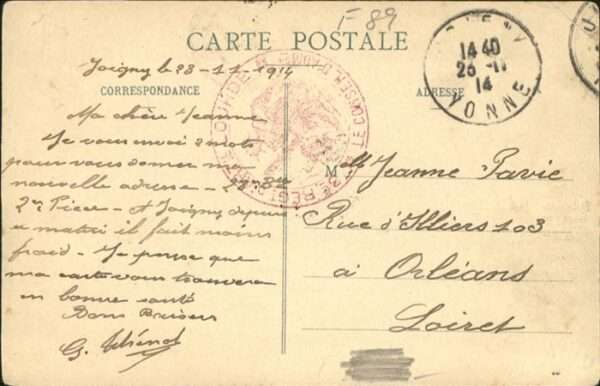 F-89
CARTE POSTALE
Joigny le 23-11-1914
CORRESPONDANCE
ADRESSE
14 40
26-11
14
YONNE
Ma chère Jeanne
Je vous envoi 2 mots
pour vous donner ma
nouvelle adresse - 28e Btie
2e Pièce - à Joigny depuis
ce matin il fait moins
froid - Je pense que
ma carte vous trouvera
en bonne santé
Bons Baisers
G. Thénot
Melle Jeanne Pavie
Rue d'Illiers 103
à Orléans
Loiret